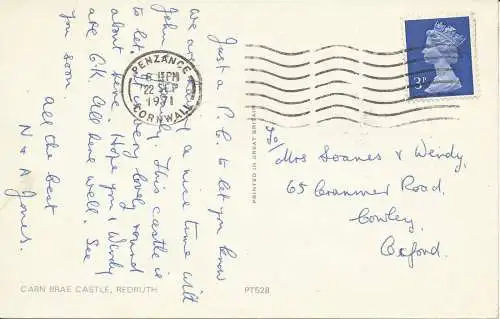 Just a P.C. to let you know
we are having a nice time with
John & family. This castle is
to let. It is very lovely round
about here. Hope you & Wendy
are O.K. All here well. See
you soon.
All the best
N & A Jones.
PENZANCE
6 15 PM
22 SEP
1971
CORNWALL
3P
To/
Mrs Soanes & Wendy,
65 Cranmer Road,
Cowley,
Oxford.
PRINTED IN GREAT BRITAIN
CARN BRAE CASTLE, REDRUTH
PT528